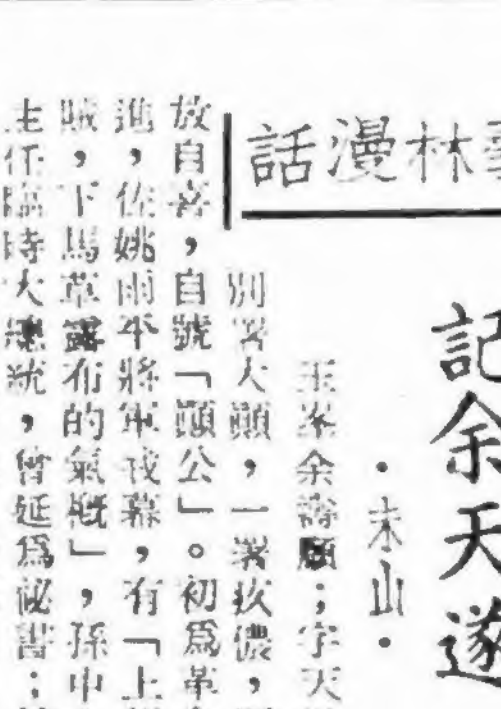 林漫話
記余天遂
·未山·
玉峯余壽頤;字天
別署大顚,一署疚儂,
放自喜,自號「顚公」。初爲革
進,佐姚雨平將軍戎幕,有「上
賊,下馬草露布的氣概」,孫中
主任臨時大總統,曾延爲祕書;